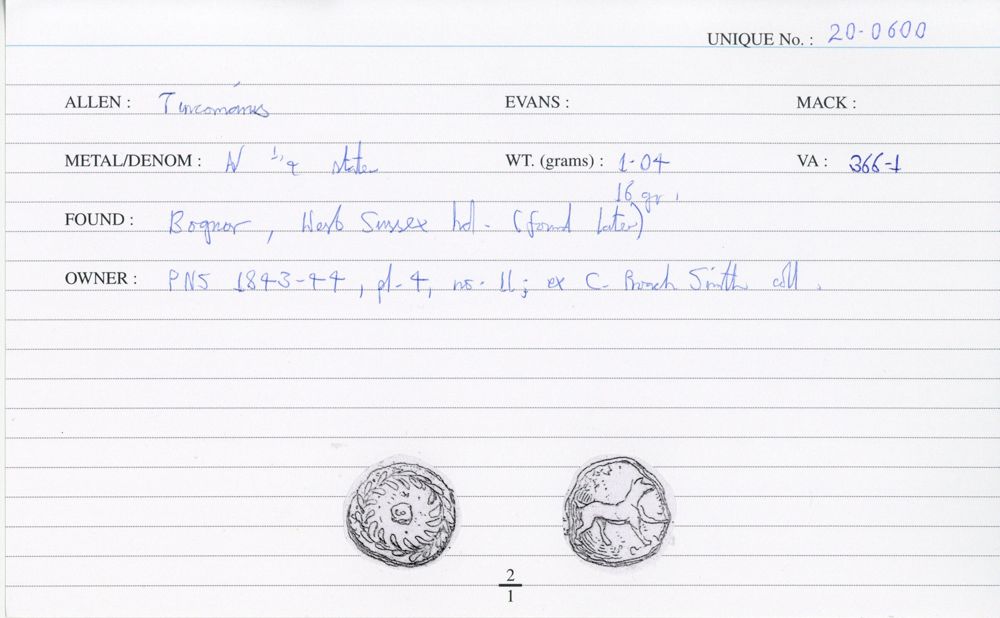 UNIQUE No. : 20-0600
ALLEN : Tincomarus EVANS : MACK :
METAL/DENOM : N 1/4 stater WT. (grams) : 1.04 VA : 366-1
16 gr.
FOUND : Bognor, West Sussex (found later)
OWNER : PNS 1843-44, pl. 4, no. 11; ex C. Roach Smith coll.
2
1